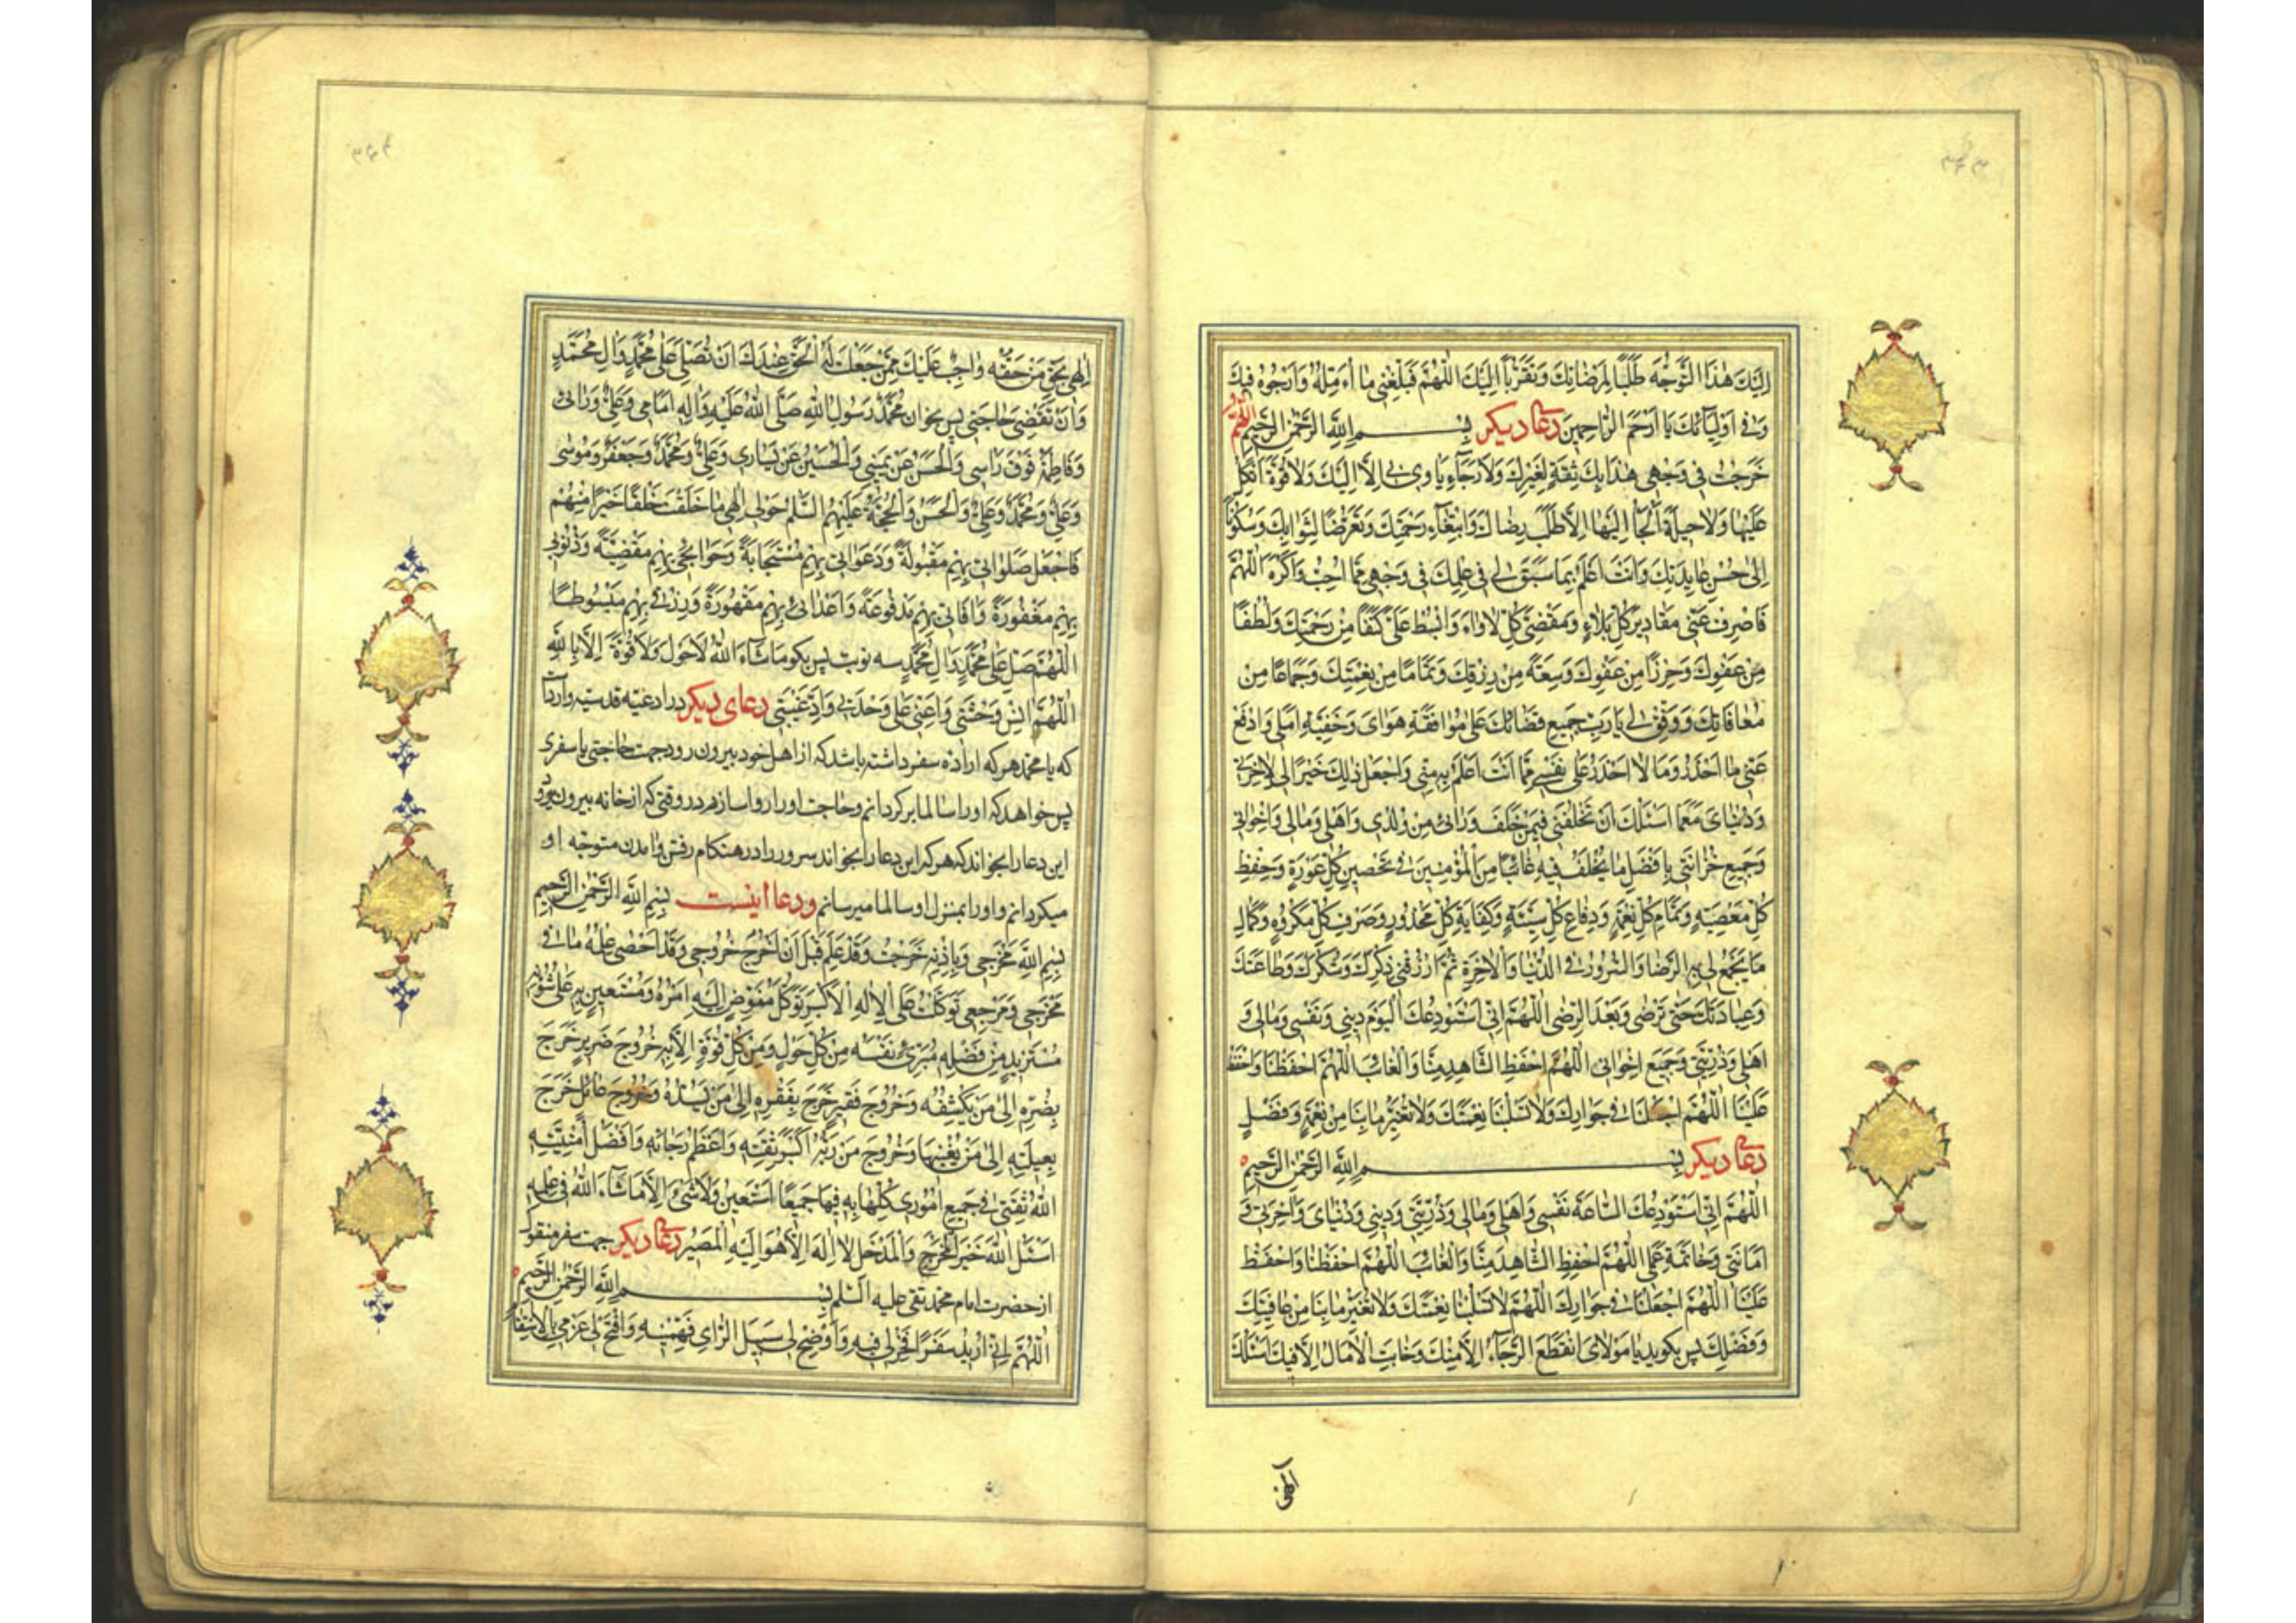 ۳۴۳
اِلَيْكَ هٰذَا التَّوَجُّهَ طَلَبًا لِمَرْضَاتِكَ وَتَقَرُّبًا اِلَيْكَ اَللّٰهُمَّ فَبَلِّغْنِي مَا اُءَمِّلُهُ وَاَرْجُوهُ فِيكَ
وَفِي اَوْلِيَآئِكَ يَا اَرْحَمَ الرَّاحِمِينَ دعای دیکر بِسْمِ اللّٰهِ الرَّحْمٰنِ الرَّحِيمِ اللّٰهُمَّ
خَرَجْتُ فِي وَجْهِي هٰذَا بِلَا ثِقَةٍ لِغَيْرِكَ وَلَا رَجَآءٍ يَاوِي بِي اِلَّا اِلَيْكَ وَلَا قُوَّةَ اَتَّكِلُ
عَلَيْهَا وَلَا حِيلَةَ اَلْجَأُ اِلَيْهَا اِلَّا طَلَبَ رِضَاكَ وَابْتِغَآءَ رَحْمَتِكَ وَتَعَرُّضًا لِثَوَابِكَ وَسُكُونًا
اِلٰى حُسْنِ عَايِدَتِكَ وَاَنْتَ اَعْلَمُ بِمَا سَبَقَ لِي فِي عِلْمِكَ فِي وَجْهِي مِمَّا اُحِبُّ وَاَكْرَهُ اَللّٰهُمَّ
فَاصْرِفْ عَنِّي مَقَادِيرَ كُلِّ بَلَاءٍ وَمَقْضِيَّ كُلِّ لَاْوَاءٍ وَابْسُطْ عَلَيَّ كَنَفًا مِنْ رَحْمَتِكَ وَلُطْفًا
مِنْ عَفْوِكَ وَحِرْزًا مِنْ عَفْوِكَ وَسَعَةً مِنْ رِزْقِكَ وَتَمَامًا مِنْ نِعْمَتِكَ وَجِمَاعًا مِنْ
مُعَافَاتِكَ وَوَفِّقْ لِي يَا رَبِّ جَمِيعَ قَضَائِكَ عَلٰى مُوَافَقَةِ هَوَايَ وَحَقِيقَةِ اَمَلِي وَادْفَعْ
عَنِّي مَا اَحْذَرُ وَمَا لَا اَحْذَرُ عَلٰى نَفْسِي مِمَّا اَنْتَ اَعْلَمُ بِهِ مِنِّي وَاجْعَلْ ذٰلِكَ خَيْرًا لِي لِاٰخِرَتِي
وَدُنْيَايَ مَعَمَا اَسْئَلُكَ اَنْ تَخْلُفَنِي فِيمَنْ خَلَّفَ وَرَائِي مِنْ وُلْدِي وَاَهْلِي وَمَالِي وَاِخْوَانِي
وَجَمِيعِ حُزَانَتِي بِاَفْضَلِ مَا تَخْلُفُ فِيهِ غَائِبًا مِنَ الْمُؤْمِنِينَ فِي تَحْصِينِ كُلِّ عَوْرَةٍ وَحِفْظِ
كُلِّ مَعْصِيَةٍ وَتَمَامِ كُلِّ نِعْمَةٍ وَدِفَاعِ كُلِّ سَيِّئَةٍ وَكِفَايَةِ كُلِّ مَحْذُورٍ وَصَرْفِ كُلِّ مَكْرُوهٍ وَكَمَالِ
مَا يَجْمَعُ لِي بِهِ الرِّضَا وَالسُّرُورَ فِي الدُّنْيَا وَالْاٰخِرَةِ ثُمَّ ارْزُقْنِي ذِكْرَكَ وَشُكْرَكَ وَطَاعَتَكَ
وَعِبَادَتَكَ حَتّٰى تَرْضٰى وَبَعْدَ الرِّضٰى اَللّٰهُمَّ اِنِّي اَسْتَوْدِعُكَ الْيَوْمَ دِينِي وَنَفْسِي وَمَالِي وَ
اَهْلِي وَذُرِّيَّتِي وَجَمِيعَ اِخْوَانِي اَللّٰهُمَّ احْفَظِ الشَّاهِدَ مِنَّا وَالْغَائِبَ اَللّٰهُمَّ احْفَظْنَا وَاحْفَظْ
عَلَيْنَا اَللّٰهُمَّ اجْعَلْنَا فِي جِوَارِكَ وَلَا تَسْلُبْنَا نِعْمَتَكَ وَلَا تُغَيِّرْ مَا بِنَا مِنْ نِعْمَةٍ وَفَضْلٍ
دعای دیکر بِسْمِ اللّٰهِ الرَّحْمٰنِ الرَّحِيمِ
اَللّٰهُمَّ اِنِّي اَسْتَوْدِعُكَ السَّاعَةَ نَفْسِي وَاَهْلِي وَمَالِي وَذُرِّيَّتِي وَدِينِي وَدُنْيَايَ وَاٰخِرَتِي وَ
اَمَانَتِي وَخَاتِمَةَ عَمَلِي اَللّٰهُمَّ احْفَظِ الشَّاهِدَ مِنَّا وَالْغَائِبَ اَللّٰهُمَّ احْفَظْنَا وَاحْفَظْ
عَلَيْنَا اَللّٰهُمَّ اجْعَلْنَا فِي جِوَارِكَ اَللّٰهُمَّ لَا تَسْلُبْنَا نِعْمَتَكَ وَلَا تُغَيِّرْ مَا بِنَا مِنْ عَافِيَتِكَ
وَفَضْلِكَ پس بکوید یَا مَوْلَايَ انْقَطَعَ الرَّجَآءُ اِلَّا مِنْكَ وَخَابَتِ الْاٰمَالُ اِلَّا فِيكَ اَسْئَلُكَ
الهی
۳۴۴
اِلٰهِي بِحَقِّ مَنْ حَقُّهُ وَاجِبٌ عَلَيْكَ مِمَّنْ جَعَلْتَ لَهُ الْحَقَّ عِنْدَكَ اَنْ تُصَلِّيَ عَلٰى مُحَمَّدٍ وَاٰلِ مُحَمَّدٍ
وَاَنْ تَقْضِيَ حَاجَتِي پس بخوان مُحَمَّدٌ رَسُولُ اللّٰهِ صَلَّى اللّٰهُ عَلَيْهِ وَاٰلِهِ اَمَامِي وَعَلِيٌّ وَرَائِي
وَفَاطِمَةُ فَوْقَ رَاْسِي وَالْحَسَنُ عَنْ يَمِينِي وَالْحُسَيْنُ عَنْ يَسَارِي وَعَلِيٌّ وَمُحَمَّدٌ وَجَعْفَرٌ وَمُوسٰى
وَعَلِيٌّ وَمُحَمَّدٌ وَعَلِيٌّ وَالْحَسَنُ وَالْحُجَّةُ عَلَيْهِمُ السَّلٰمُ حَوْلِي اِلٰهِي مَا خَلَقْتَ خَلْقًا خَيْرًا مِنْهُمْ
فَاجْعَلْ صَلَوَاتِي بِهِمْ مَقْبُولَةً وَدَعَوَاتِي بِهِمْ مُسْتَجَابَةً وَحَوَائِجِي بِهِمْ مَقْضِيَّةً وَذُنُوبِي
بِهِمْ مَغْفُورَةً وَاٰفَاتِي بِهِمْ مَدْفُوعَةً وَاَعْدَائِي بِهِمْ مَقْهُورَةً وَرِزْقِي بِهِمْ مَبْسُوطًا
اَللّٰهُمَّ صَلِّ عَلٰى مُحَمَّدٍ وَاٰلِ مُحَمَّدٍ سه نوبت پس بکو مَاشَآءَ اللّٰهُ لَا حَوْلَ وَلَا قُوَّةَ اِلَّا بِاللّٰهِ
اَللّٰهُمَّ اٰنِسْ وَحْشَتِي وَاَعِنِّي عَلٰى وَحْدَتِي وَاَدِّ غَيْبَتِي دعای دیکر در ادعیه قدسیه وارد است
که یا محمد هر که اراده سفر داشته باشد که از اهل خود بیرون رود جهت حاجتی یا سفری
پس خواهد که او را سالما برکردانم و حاجت او را روا سازم در وقتی که از خانه بیرون رود
این دعا را بخواند که هر که این دعا را بخواند سرور را در هنکام رفتن و آمدن متوجه او
میکردانم و او را بمنزل او سالما میرسانم ودعا اینست بِسْمِ اللّٰهِ الرَّحْمٰنِ الرَّحِيمِ
بِسْمِ اللّٰهِ مَخْرَجِي وَبِاِذْنِهِ خَرَجْتُ وَقَدْ عَلِمَ قَبْلَ اَنْ اَخْرُجَ خُرُوجِي وَقَدْ اَحْصٰى عِلْمُهُ مَا فِي
مَخْرَجِي وَمَرْجِعِي تَوَكَّلْتُ عَلَى الْاِلٰهِ الْاَكْبَرِ تَوَكُّلَ مُفَوِّضٍ اِلَيْهِ اَمْرَهُ وَمُسْتَعِينٍ بِهِ عَلٰى شُؤُنِهِ
مُسْتَزِيدٍ مِنْ فَضْلِهِ مُبْرِئٍ نَفْسَهُ مِنْ كُلِّ حَوْلٍ وَمِنْ كُلِّ قُوَّةٍ اِلَّا بِهِ خُرُوجَ ضَرِيرٍ خَرَجَ
بِضُرِّهِ اِلٰى مَنْ يَكْشِفُهُ وَخُرُوجَ فَقِيرٍ خَرَجَ بِفَقْرِهِ اِلٰى مَنْ يَسُدُّهُ وَخُرُوجَ عَائِلٍ خَرَجَ
بِعَيْلَتِهِ اِلٰى مَنْ يُغْنِيهَا وَخُرُوجَ مَنْ رَبُّهُ اَكْبَرُ ثِقَتِهِ وَاَعْظَمُ رَجَائِهِ وَاَفْضَلُ اُمْنِيَّتِهِ
اَللّٰهُ ثِقَتِي فِي جَمِيعِ اُمُورِي كُلِّهَا بِهِ فِيهَا جَمِيعًا اَسْتَعِينُ وَلَا شَيْءَ اِلَّا مَا شَآءَ اللّٰهُ فِي عِلْمِهِ
اَسْئَلُ اللّٰهَ خَيْرَ الْمَخْرَجِ وَالْمَدْخَلِ لَا اِلٰهَ اِلَّا هُوَ اِلَيْهِ الْمَصِيرُ دعای دیکر جهت سفر منقول
از حضرت امام محمد تقی علیه السلم بِسْمِ اللّٰهِ الرَّحْمٰنِ الرَّحِيمِ
اَللّٰهُمَّ اِنِّي اُرِيدُ سَفَرًا فَخِرْ لِي فِيهِ وَاَوْضِحْ لِي سَبِيلَ الرَّاْيِ فَهِّمْنِيهِ وَافْتَحْ لِي عَزْمِي بِالْاِسْتِقَامَةِ